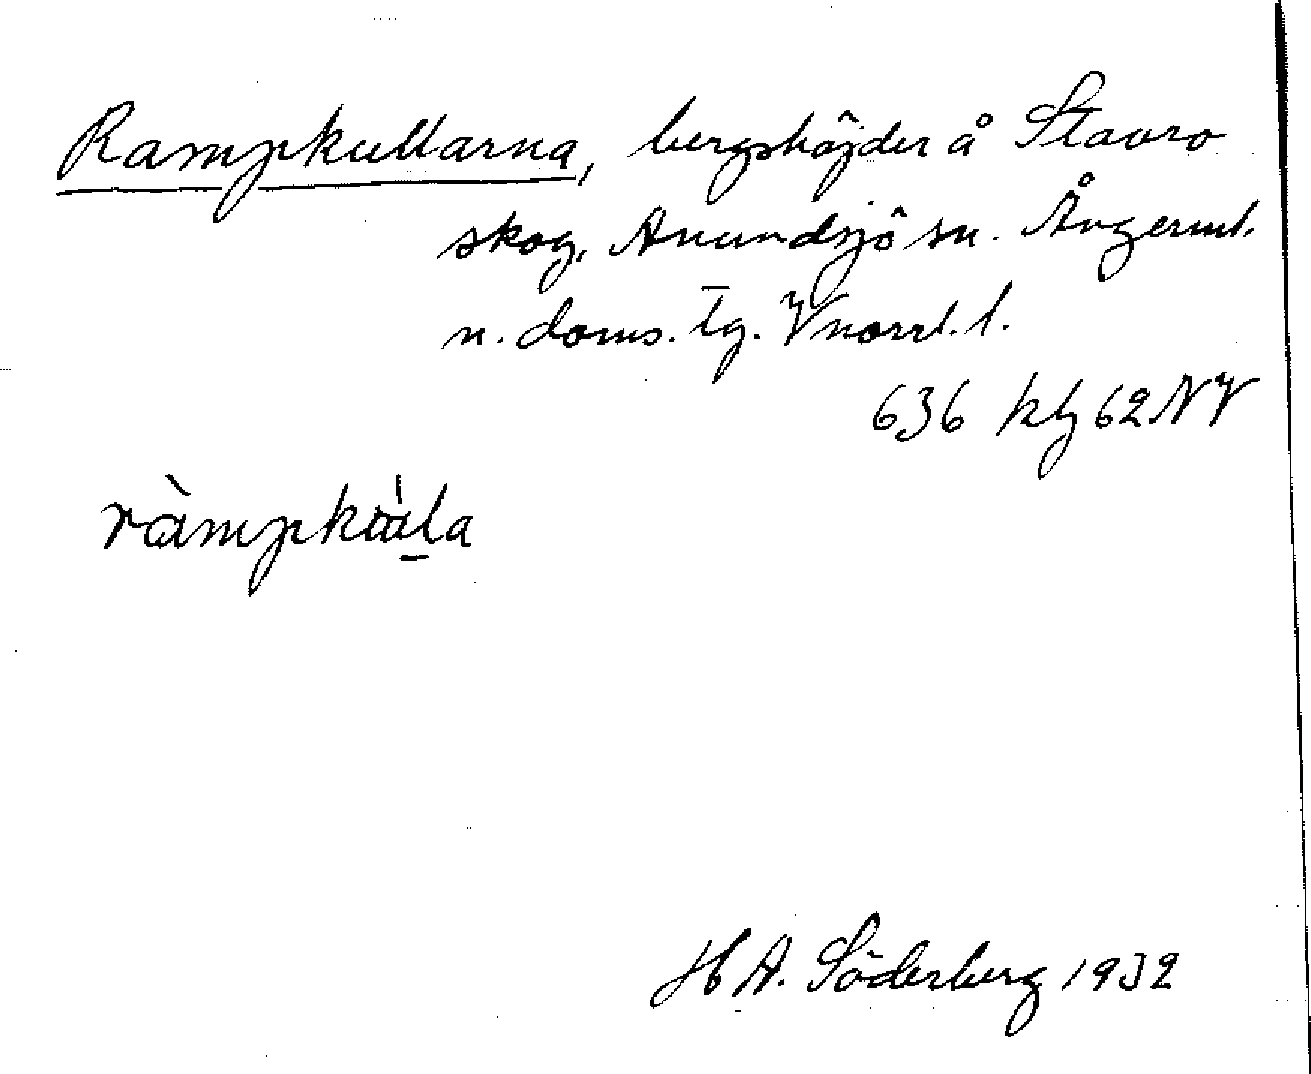 Rampkullarna, bergshöjder å Stavro
skog, Anundsjö sn. Ångerml.
n. doms. tg. Vnorrl. l.
636 kbl 62 NV
ràmpkùla
H A. Söderberg 1932